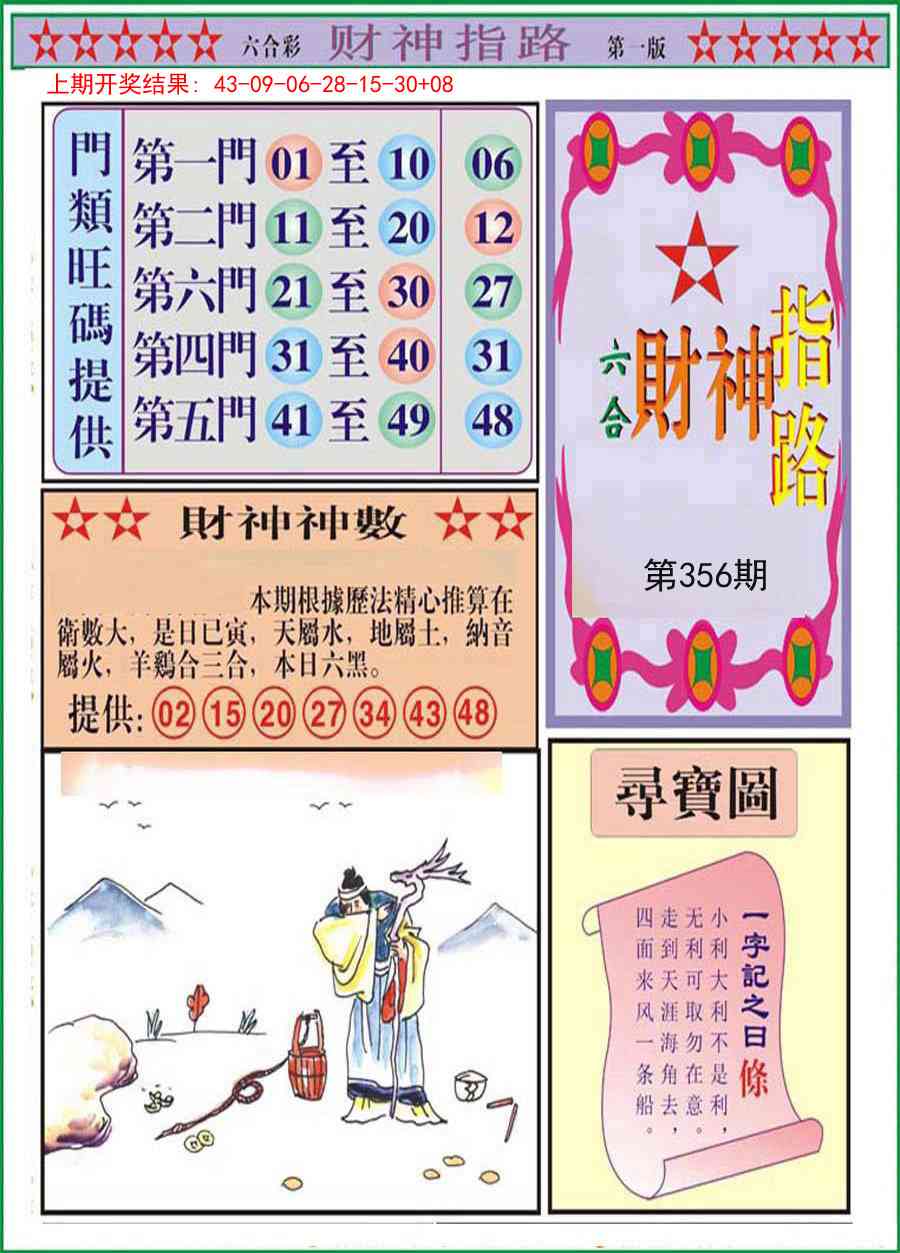 六合彩 财神指路 第一版
上期开奖结果：43-09-06-28-15-30+08
門類旺碼提供
第一門 01 至 10 06
第二門 11 至 20 12
第六門 21 至 30 27
第四門 31 至 40 31
第五門 41 至 49 48
六合
財神
指路
第356期
財神神數
本期根據歷法精心推算在
衛數大，是日已寅，天屬水，地屬土，納音
屬火，羊鷄合三合，本日六黑。
提供: 02 15 20 27 34 43 48
尋寶圖
一字記之曰條
小利大利不是利，
无利可取勿在意。
走到天涯海角去，
四面来风一条船。